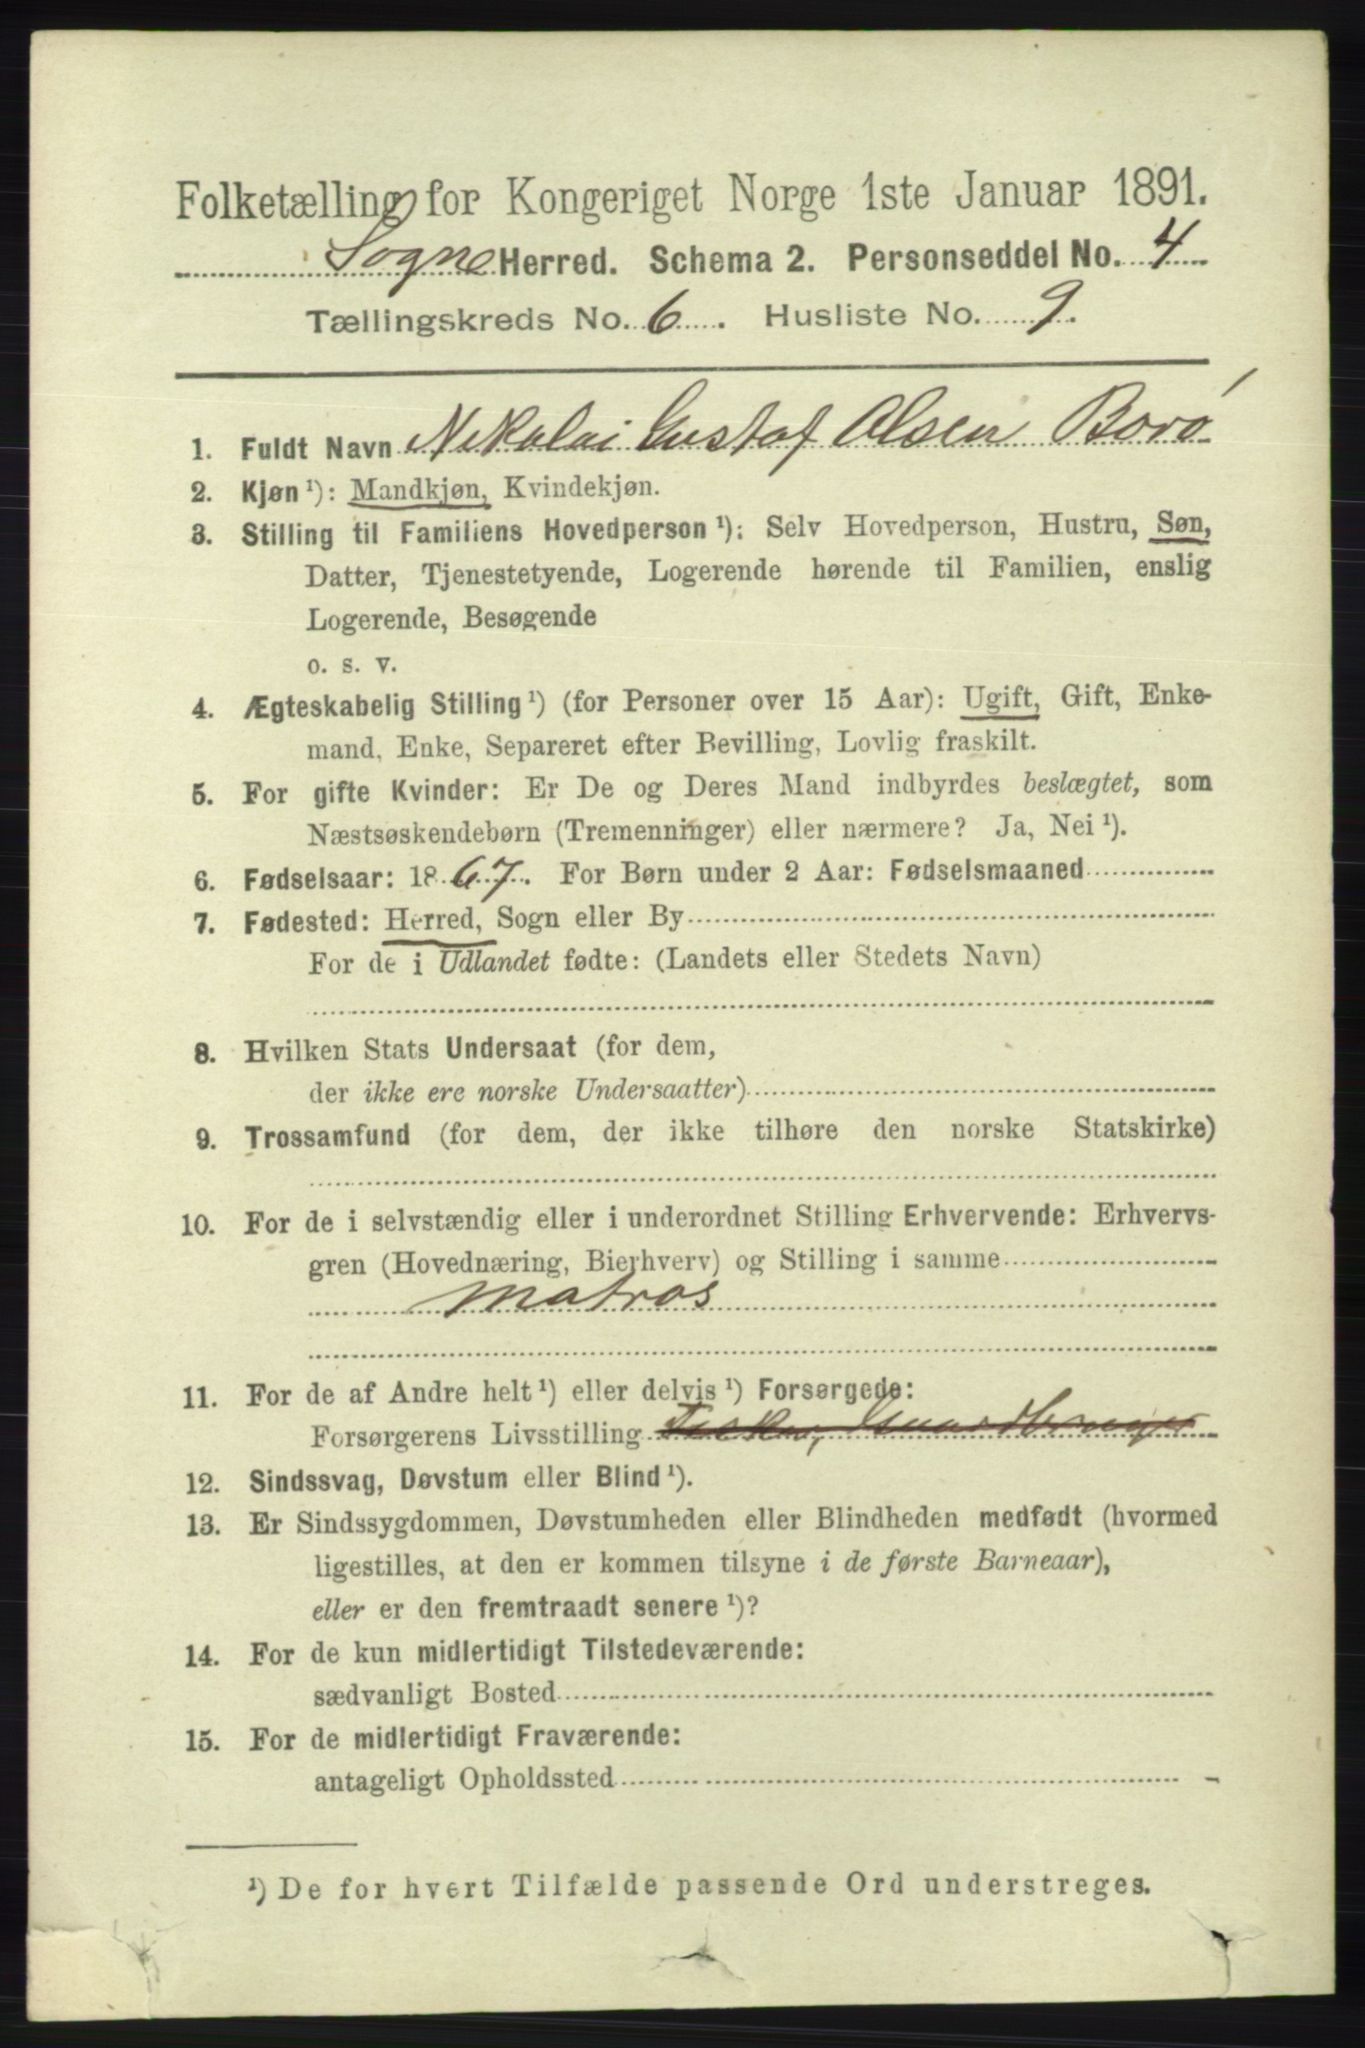 Folketælling for Kongeriget Norge 1ste Januar 1891.
Sogne Herred. Schema 2. Personseddel No. 4
Tællingskreds No. 6. Husliste No. 9.
1. Fuldt Navn Nikolai Gustaf Olsen Borø
2. Kjøn ¹): Mandkjøn, Kvindekjøn.
3. Stilling til Familiens Hovedperson ¹): Selv Hovedperson, Hustru, Søn,
Datter, Tjenestetyende, Logerende hørende til Familien, enslig
Logerende, Besøgende
o. s. v.
4. Ægteskabelig Stilling ¹) (for Personer over 15 Aar): Ugift, Gift, Enke-
mand, Enke, Separeret efter Bevilling, Lovlig fraskilt.
5. For gifte Kvinder: Er De og Deres Mand indbyrdes beslægtet, som
Næstsøskendebørn (Tremenninger) eller nærmere? Ja, Nei ¹).
6. Fødselsaar: 1867. For Børn under 2 Aar: Fødselsmaaned
7. Fødested: Herred, Sogn eller By
For de i Udlandet fødte: (Landets eller Stedets Navn)
8. Hvilken Stats Undersaat (for dem,
der ikke ere norske Undersaatter)
9. Trossamfund (for dem, der ikke tilhøre den norske Statskirke)
10. For de i selvstændig eller i underordnet Stilling Erhvervende: Erhvervs-
gren (Hovednæring, Bierhverv) og Stilling i samme
Matros
11. For de af Andre helt ¹) eller delvis ¹) Forsørgede:
Forsørgerens Livsstilling Fisker, Gaardbruger
12. Sindssvag, Døvstum eller Blind ¹).
13. Er Sindssygdommen, Døvstumheden eller Blindheden medfødt (hvormed
ligestilles, at den er kommen tilsyne i de første Barneaar),
eller er den fremtraadt senere ¹)?
14. For de kun midlertidigt Tilstedeværende:
sædvanligt Bosted
15. For de midlertidigt Fraværende:
antageligt Opholdssted
¹) De for hvert Tilfælde passende Ord understreges.